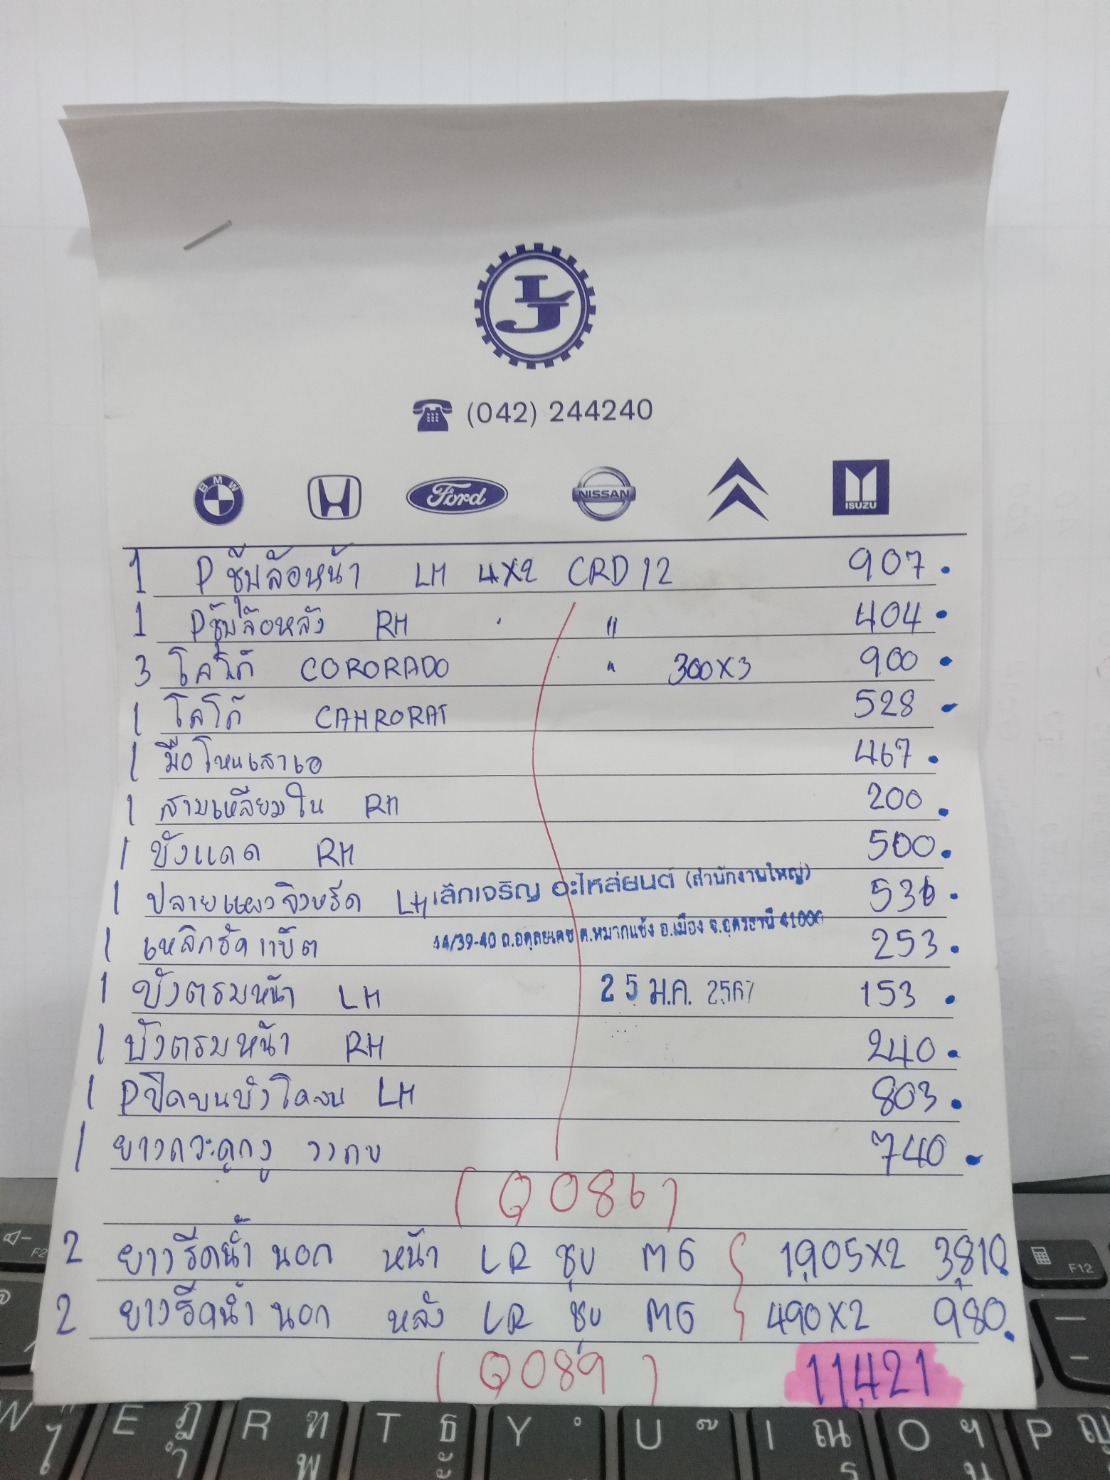 LJ
(042) 244240
BMW Ford NISSAN ISUZU
1 P ซุ้มล้อหน้า LH 4X2 CRD12 907.
1 Pซุ้มล้อหลัง RH " 404.
3 โลโก้ CORORADO " 300X3 900.
1 โลโก้ CAHRORAT 528
1 มือโหนเสาเอ 467.
1 สามเหลียมใน RH 200.
1 บังแดด RH 500.
1 ปลาย LH 536.
เล้กเจริญ อะไหล่ยนต์ (สำนักงานใหญ่)
44/39-40 ถ.อดุลยเดช ต.หมากแข้ง อ.เมือง จ.อุดรธานี 41000
1 เหล็กรัดแบ็ต 253.
1 บังตรมหน้า LH 153.
25 ม.ค. 2567
1 บังตรมหน้า RH 240.
1 Pปิดบนบังโคลน LH 803.
1 ยาง 740.
(Q086)
2 ยางรีดน้ำนอก หน้า LR ชุบ MG 1,905X2 3,810.
2 ยางรีดน้ำนอก หลัง LR ชุบ MG 490X2 980.
(Q089) 11,421
W E ฎ ำ R ฑ พ T ธ ะ Y U ๊ I ณ ร O ฯ น P ญ
F2 F12